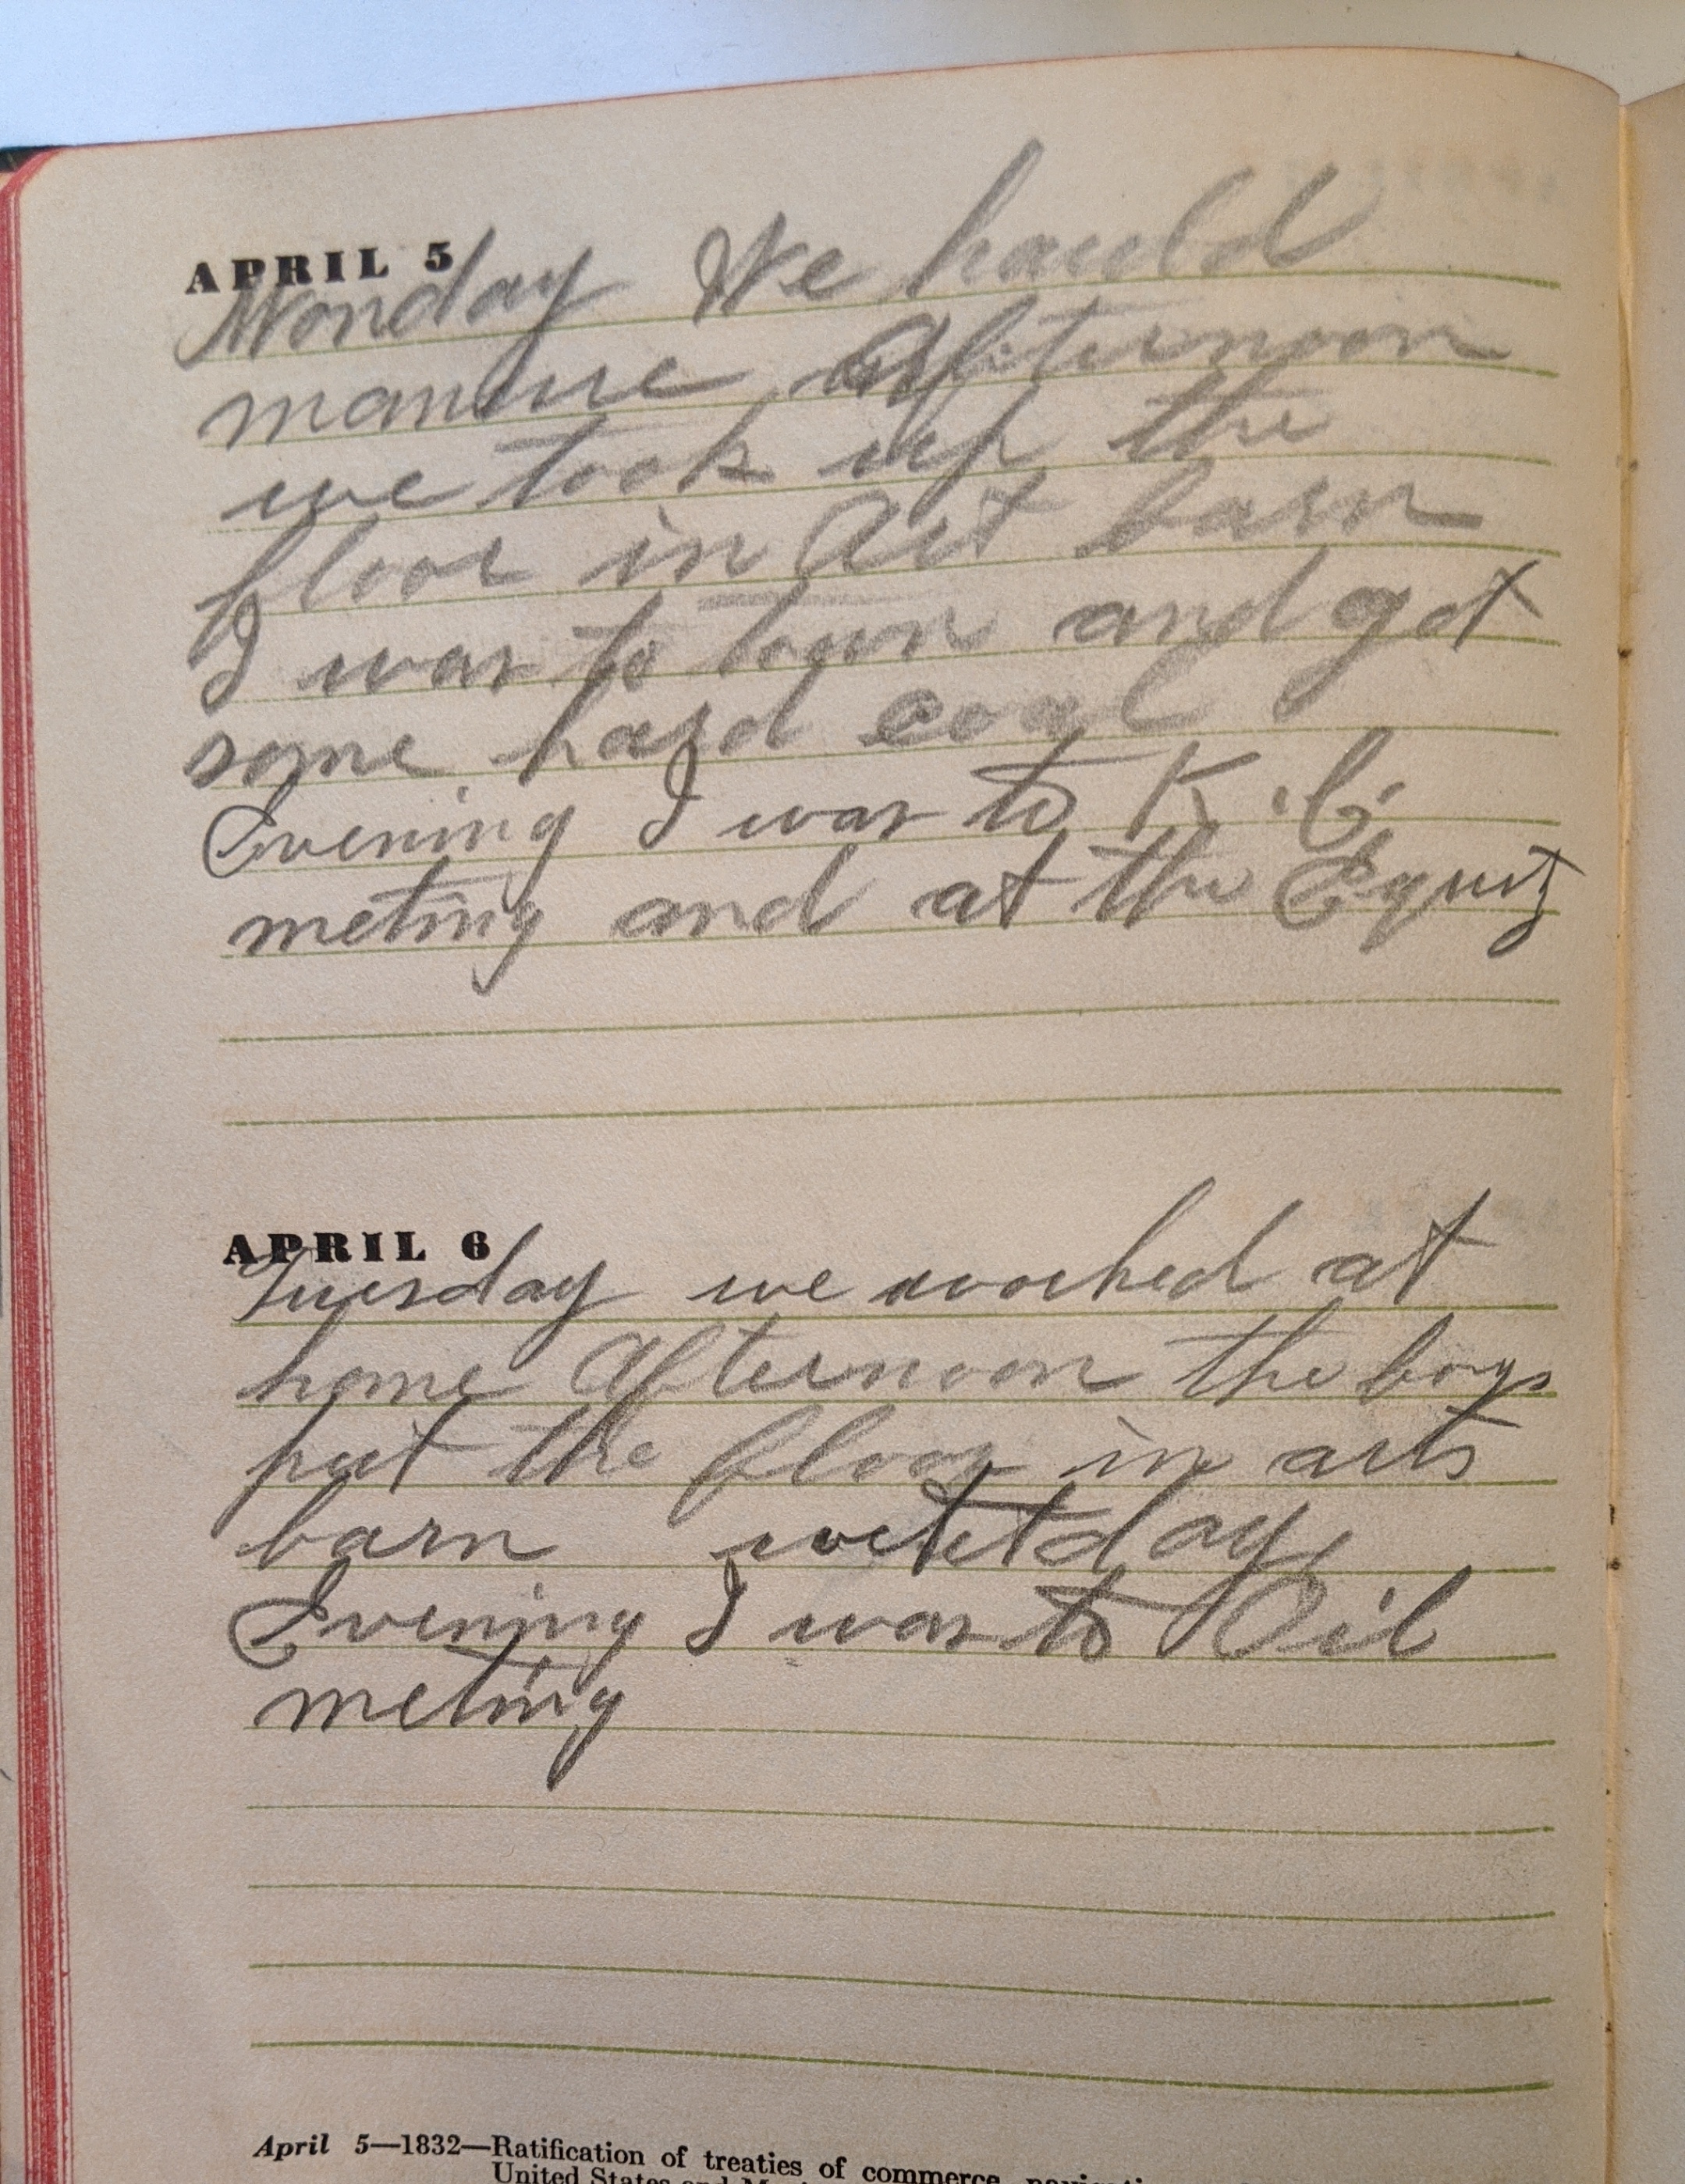 APRIL 5
Monday We hauld
manure Afternoon
we took up the
floor in Art barn
I was to town and got
some hard coal
Evening I was to K.C.
meting and at the Equity
APRIL 6
Tuesday we worked at
home Afternoon the boys
put the floor in arts
barn wet day
Evening I was to Oil
meting
April 5—1832—Ratification of treaties of commerce,
United States and